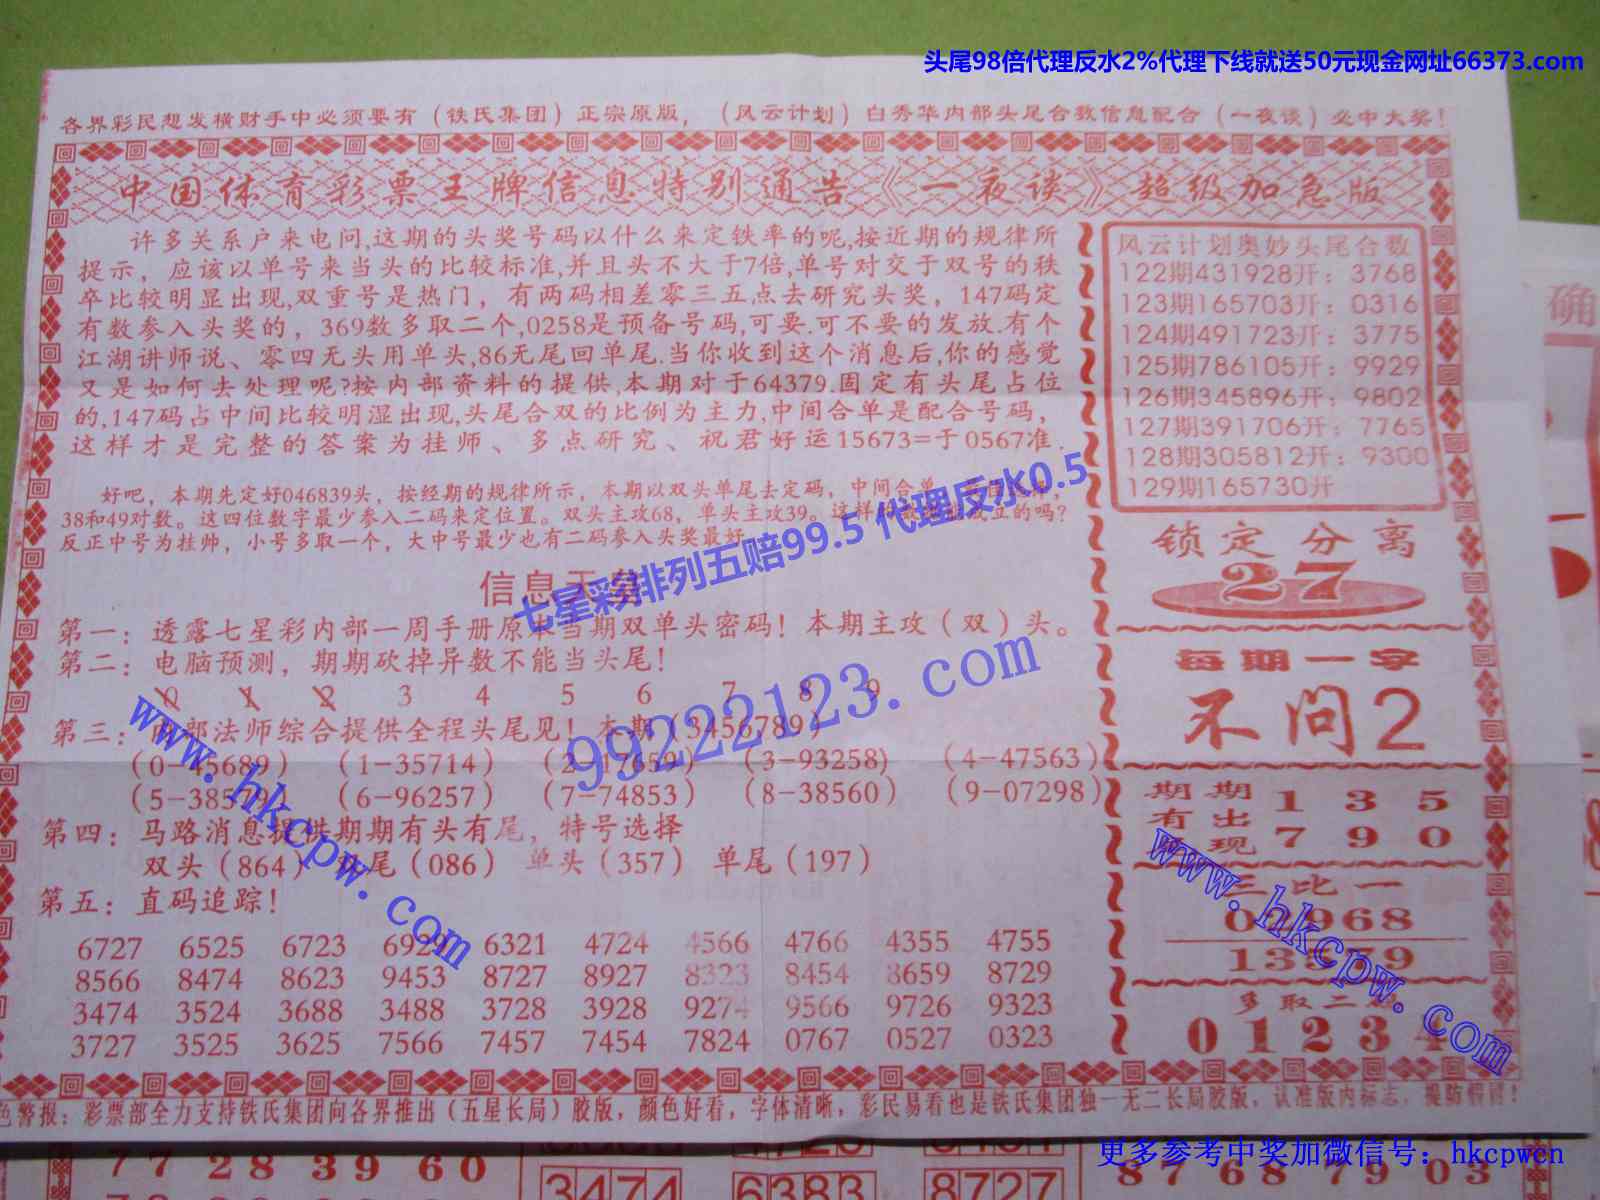 头尾98倍代理反水2%代理下线就送50元现金网址66373.com
各界彩民想发横财手中必须要有（铁氏集团）正宗原版，（风云计划）白秀华内部头尾合数信息配合（一夜谈）必中大奖！
中国体育彩票王牌信息特别通告《一夜谈》超级加急版
许多关系户来电问,这期的头奖号码以什么来定铁率的呢,按近期的规律所
提示，应该以单号来当头的比较标准,并且头不大于7倍,单号对交于双号的秩
卒比较明显出现,双重号是热门，有两码相差零三五点去研究头奖，147码定
有数参入头奖的，369数多取二个,0258是预备号码,可要.可不要的发放.有个
江湖讲师说、零四无头用单头,86无尾回单尾.当你收到这个消息后,你的感觉
又是如何去处理呢?按内部资料的提供,本期对于64379.固定有头尾占位
的,147码占中间比较明湿出现,头尾合双的比例为主力,中间合单是配合号码，
这样才是完整的答案为挂师、多点研究、祝君好运15673=于0567准.
好吧，本期先定好046839头，按经期的规律所示，本期以双头单尾去定码，中间合单
38和49对数。这四位数字最少参入二码来定位置。双头主攻68，单头主攻39。这样的 成立的吗?
反正中号为挂帅，小号多取一个，大中号最少也有二码参入头奖最好
七星彩排列五赔99.5 代理反水0.5
信息天
第一：透露七星彩内部一周手册原本当期双单头密码！本期主攻（双）头。
第二：电脑预测，期期砍掉异数不能当头尾！
0 1 2 3 4 5 6 7 8 9
99222123.com
www.hkcpw.com
第三：内部法师综合提供全程头尾见！本期（3456789）
（0- 5689）（1-35714）（2-17659）（3-93258）（4-47563）
（5-385 ）（6-96257）（7-74853）（8-38560）（9-07298）
第四：马路消息提供期期有头有尾，特号选择
双头（864）双尾（086） 单头（357） 单尾（197）
第五：直码追踪！
6727 6525 6723 6929 6321 4724 4566 4766 4355 4755
8566 8474 8623 9453 8727 8927 8323 8454 8659 8729
3474 3524 3688 3488 3728 3928 9274 9566 9726 9323
3727 3525 3625 7566 7457 7454 7824 0767 0527 0323
风云计划奥妙头尾合数
122期431928开：3768
123期165703开：0316
124期491723开：3775
125期786105开：9929
126期345896开：9802
127期391706开：7765
128期305812开：9300
129期165730开
锁定分离
27
每期一字
不问2
期期 1 3 5
有出
现 7 9 0
三比一
02968
13579
www.hkcpw.com
多取二
0 1 2 3 4
色警报：彩票部全力支持铁氏集团向各界推出（五星长局）胶版，颜色好看，字体清晰，彩民易看也是铁氏集团独一无二长局胶版，认准版内标志，提防假冒！
更多参考中奖加微信号：hkcpwcn
77 28 39 60
3474 6383 8727
87 68 79 03
确